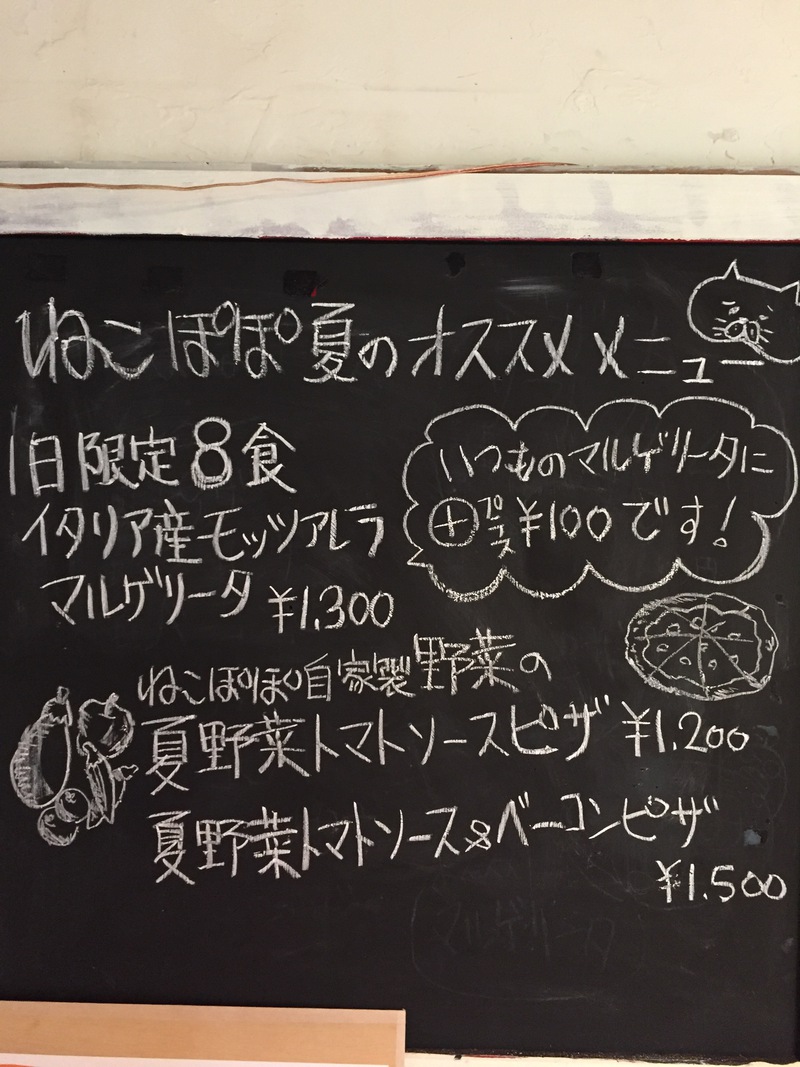 ねこぽぽ夏のオススメメニュー
1日限定8食
イタリア産モッツアレラ
マルゲリータ ¥1.300
いつものマルゲリータに
⊕プラス¥100です!
ねこぽぽ自家製野菜の
夏野菜トマトソースピザ ¥1.200
夏野菜トマトソース&ベーコンピザ
¥1.500
マルゲリータ